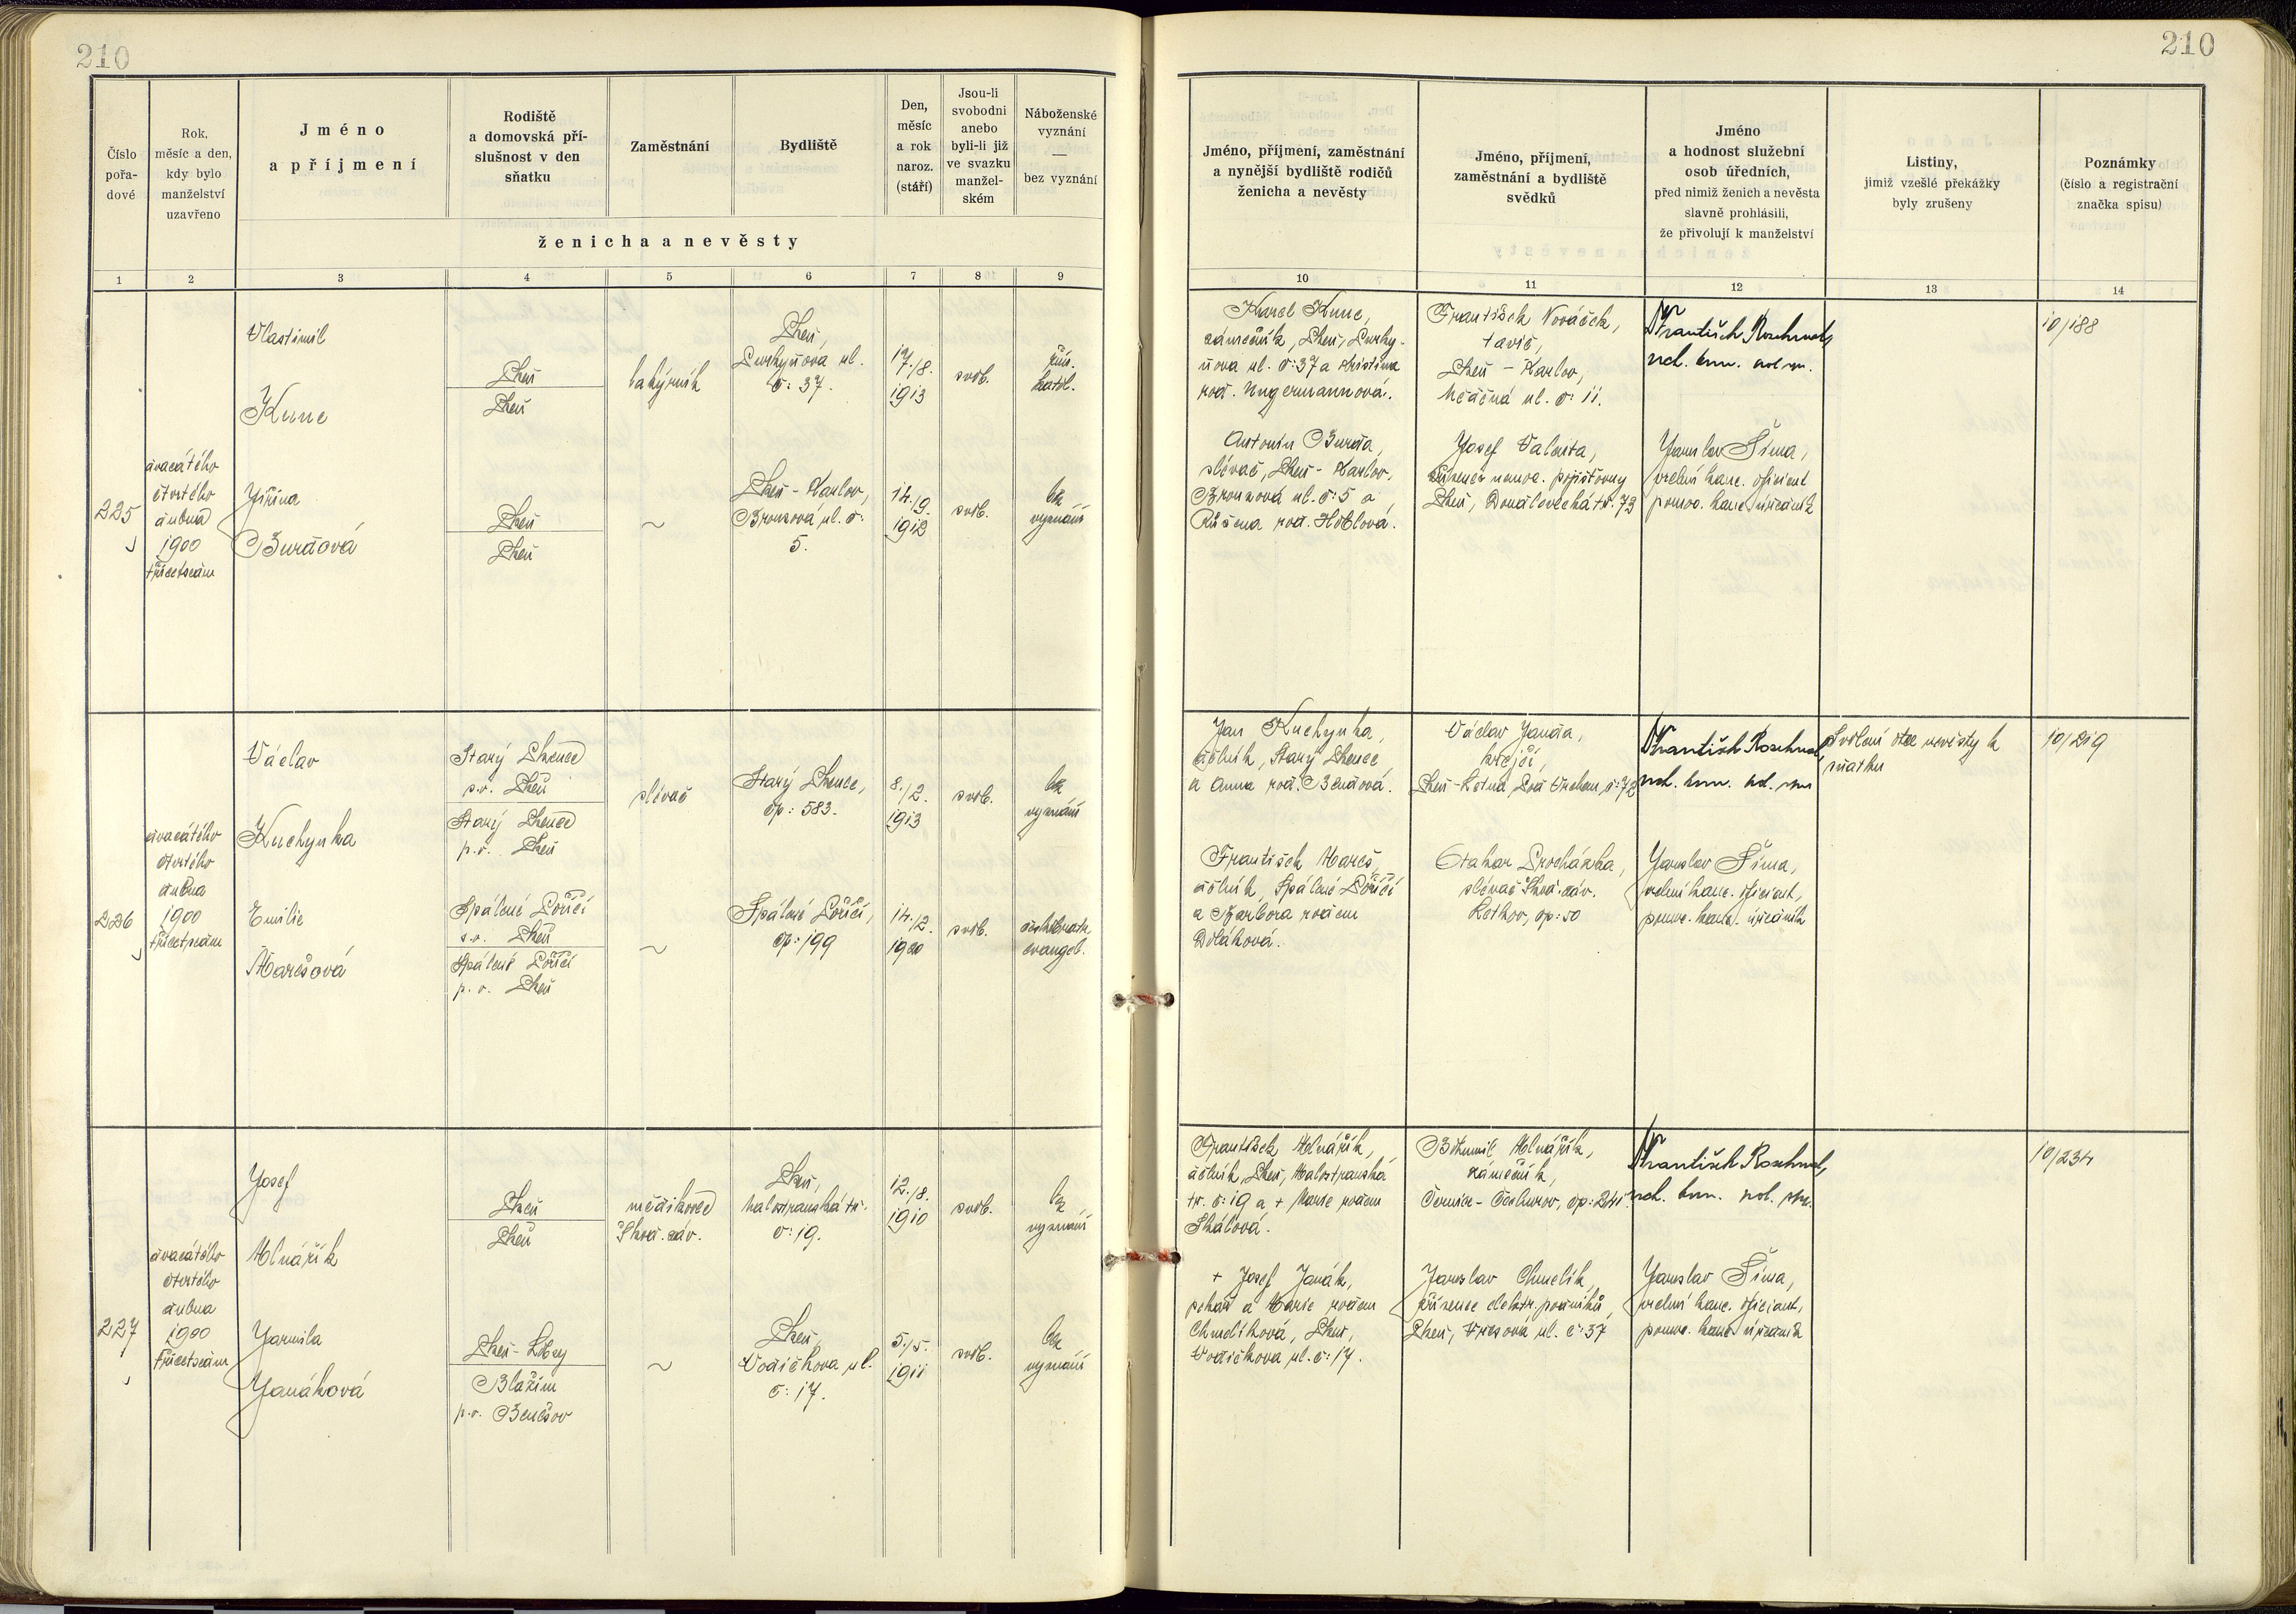 210
210
Číslo pořa- dové
Rok, měsíc a den, kdy bylo manželství uzavřeno
Jméno a příjmení
Rodiště a domovská pří- slušnost v den sňatku
Zaměstnání
Bydliště
Den, měsíc a rok naroz. (stáří)
Jsou-li svobodni anebo byli-li již ve svazku manžel- ském
Náboženské vyznání — bez vyznání
ženicha a nevěsty
Jméno, příjmení, zaměstnání a nynější bydliště rodičů ženicha a nevěsty
Jméno, příjmení, zaměstnání a bydliště svědků
Jméno a hodnost služební osob úředních, před nimiž ženich a nevěsta slavně prohlásili, že přivolují k manželství
Listiny, jimiž vzešlé překážky byly zrušeny
Poznámky (číslo a registrační značka spisu)
1 2 3 4 5 6 7 8 9 10 11 12 13 14
225
dvacátého
čtvrtého
dubna
1900
třicetsedm
Vlastimil
Kunc
Plzeň
Plzeň
lakýrník
Plzeň,
Purkyňova ul.
č: 37.
17./8.
1913
svob.
řím.
katol.
Jiřina
Burdová
Plzeň
Plzeň
~
Plzeň - Karlov,
Bronzová ul. č:
5.
14./9.
1912
svob.
bez
vyznání
Karel Kunc,
zámečník, Plzeň, Purky-
ňova ul. č: 37 a Kristina
roz. Ungermannová.
Antonín Burda,
slévač, Plzeň - Karlov,
Bronzová ul. č: 5 a
Růžena roz.
František Nováček,
tavič,
Plzeň - Karlov,
ul. č: 11.
Josef Valenta,
zřízenec nemoc. pojišťovny
Plzeň, Doudlevecká tř. 73
František
Jaroslav Šíma,
vrchní kanc. oficiant
pomoc. kanc. úředník
10/188
226
dvacátého
čtvrtého
dubna
1900
třicetsedm
Václav
Kuchynka
Starý Plzenec
s.o. Plzeň
Starý Plzenec
p.o. Plzeň
slévač
Starý Plzenec,
čp: 583.
8./2.
1913
svob.
bez
vyznání
Emilie
Marešová
Spálené Poříčí
s.o. Plzeň
Spálené Poříčí
p.o. Plzeň
~
Spálené Poříčí,
čp: 199
14./2.
1920
svob.
českobratr.
evangel.
Jan Kuchynka,
dělník, Starý Plzenec
a Anna roz. Bendová.
František Mareš,
dělník, Spálené Poříčí
a Barbora rozem
Václav Janda,
krejčí,
Plzeň - Lobzy, Pod Vrchem, č: 72
Otakar Procházka,
slévač Škod. záv.
čp: 50
František
Jaroslav Šíma,
vrchní kanc. oficiant,
pomoc. kanc. úředník
Svolení otce nevěsty k
sňatku
10/219
227
dvacátého
čtvrtého
dubna
1900
třicetsedm
Josef
Mlnářík
Plzeň
Plzeň
Škod. záv.
Plzeň,
Malostranská tř.
č: 19.
12./8.
1910
svob.
bez
vyznání
Jarmila
Janáková
Plzeň - Lobzy
Blažim
p.o. Benešov
~
Plzeň,
Vodičkova ul.
č: 17.
5./5.
1911
svob.
bez
vyznání
František Mlnářík,
dělník, Plzeň, Malostranská
tř. č: 19 a + Marie rozem
Skálová.
+ Josef Janák,
pekař a Marie rozem
Chmelíková, Plzeň,
Vodičkova ul. č: 17.
Bohumil Mlnářík,
zámečník,
Černice - čp: 241.
Jaroslav Chmelík,
zřízenec elektr. podniků,
Plzeň, ul. č: 37
František
Jaroslav Šíma,
vrchní kanc. oficiant,
pomoc. kanc. úředník
10/234